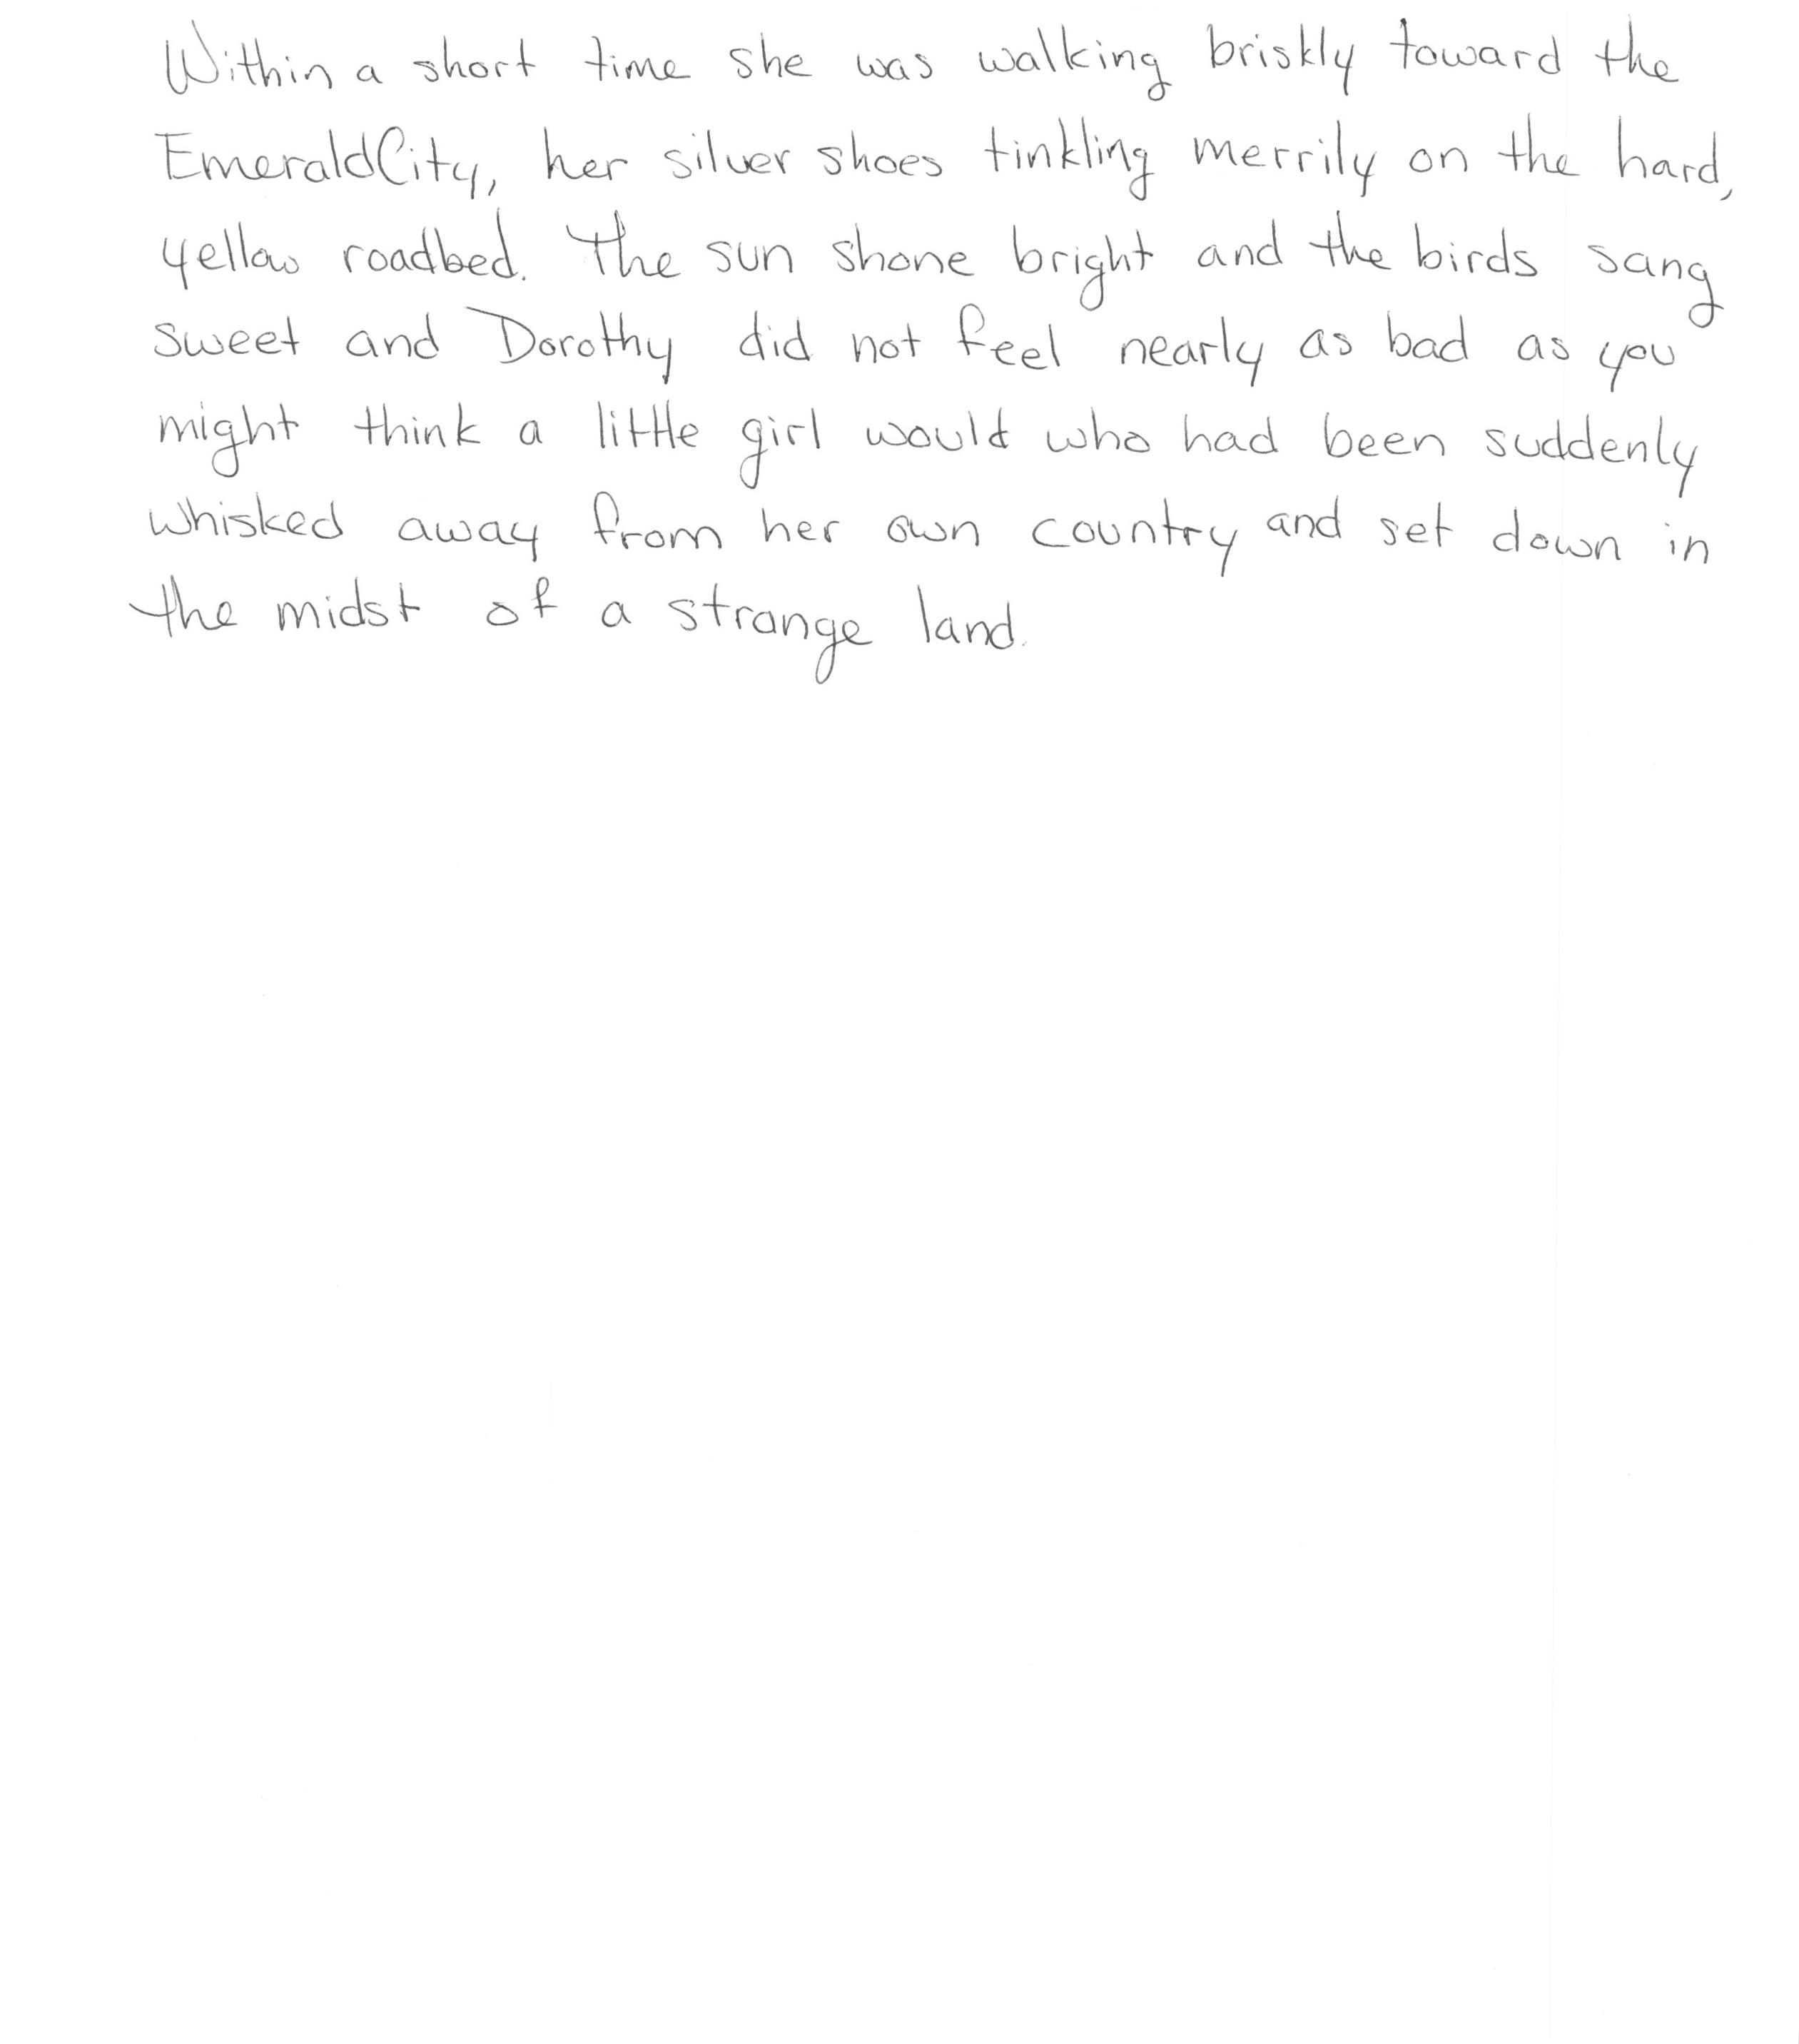 Within a short time she was walking briskly toward the
EmeraldCity, her silver shoes tinkling merrily on the hard,
yellow roadbed. The sun shone bright and the birds sang
sweet and Dorothy did not feel nearly as bad as you
might think a little girl would who had been suddenly
whisked away from her own country and set down in
the midst of a strange land.